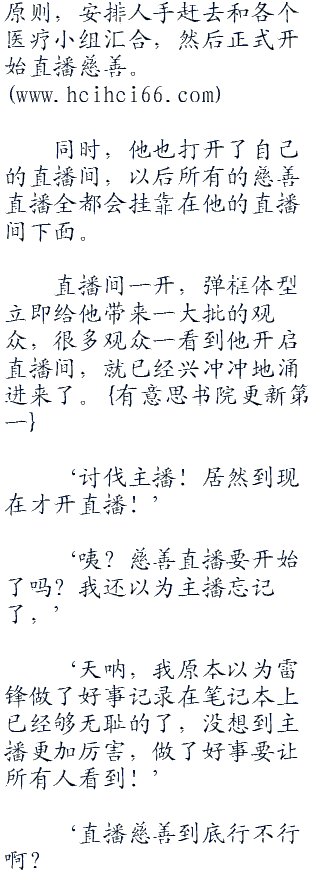 原则，安排人手赶去和各个
医疗小组汇合，然后正式开
始直播慈善。
(www.hcihci66.com)
同时，他也打开了自己
的直播间，以后所有的慈善
直播全都会挂靠在他的直播
间下面。
直播间一开，弹框体型
立即给他带来一大批的观
众，很多观众一看到他开启
直播间，就已经兴冲冲地涌
进来了。{有意思书院更新第
一}
‘讨伐主播！居然到现
在才开直播！’
‘咦？慈善直播要开始
了吗？我还以为主播忘记
了，’
‘天呐，我原本以为雷
锋做了好事记录在笔记本上
已经够无耻的了，没想到主
播更加厉害，做了好事要让
所有人看到！’
‘直播慈善到底行不行
啊？